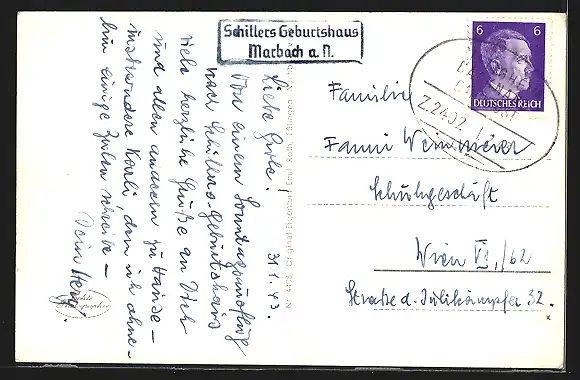 Schillers Geburtshaus
Marbach a. N.
6 6
DEUTSCHES REICH
Z.2402
Liebe Grete!
31.1.43.
Von einem Sonntagsausflug
nach Schillers-Geburtshaus
viele herzliche Grüße an Dich
und allen anderen zu Hause -
insbesondere Karli, dem ich ohne-
hin einige Zeilen schreibe -
Dein
Echte Photographie
Familie
Fanni
Schuhgeschäft
Wien VI./62
Straße d. Julikämpfer 32.